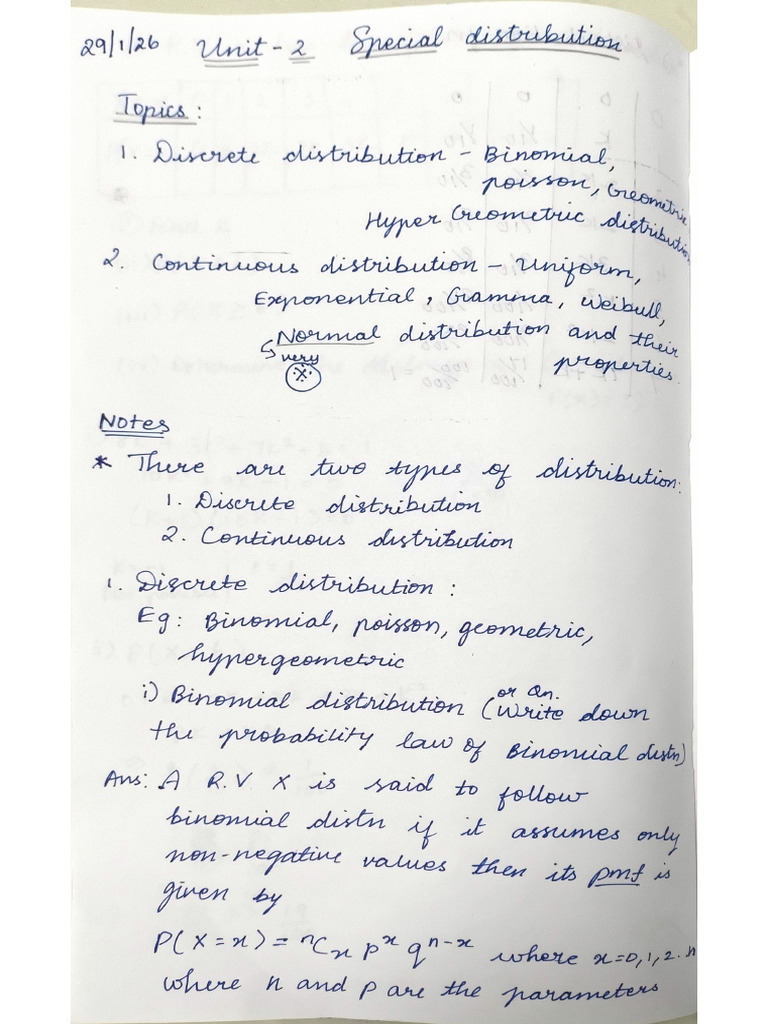 29/1/26 Unit - 2 Special distribution
Topics:
1. Discrete distribution - Binomial,
poisson, Geometric
Hyper Geometric distribution
2. Continuous distribution - Uniform,
Exponential, Gamma, Weibull,
Normal distribution and their
very properties.
Notes
* There are two types of distribution:
1. Discrete distribution
2. Continuous distribution
1. Discrete distribution:
Eg: Binomial, poisson, geometric,
hypergeometric
i) Binomial distribution (or Qn. Write down
the probability law of Binomial distn)
Ans: A R.V. X is said to follow
binomial distn if it assumes only
non-negative values then its pmf is
given by
P(X=x) = ⁿCₓ pˣ qⁿ⁻ˣ where x=0,1,2..n
where n and p are the parameters